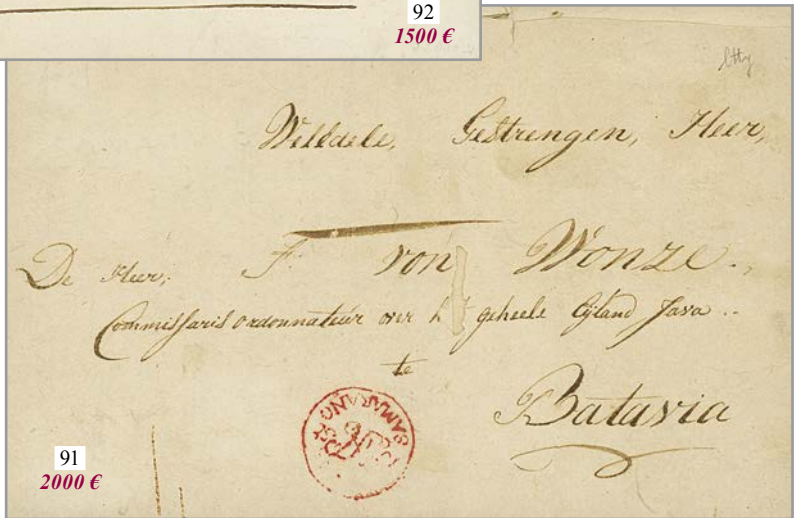 92
1500 €
Weledele, Gestrengen, Heer,
De Heer, F. von Wonze.,
Commissaris ordonnateur over h geheele Eyland Java..
te
Batavia
SAMARANG
91
2000 €